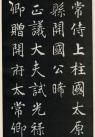 常侍上柱國太原
縣開國公晞
正議大夫試光祿
卿贈開府太常卿